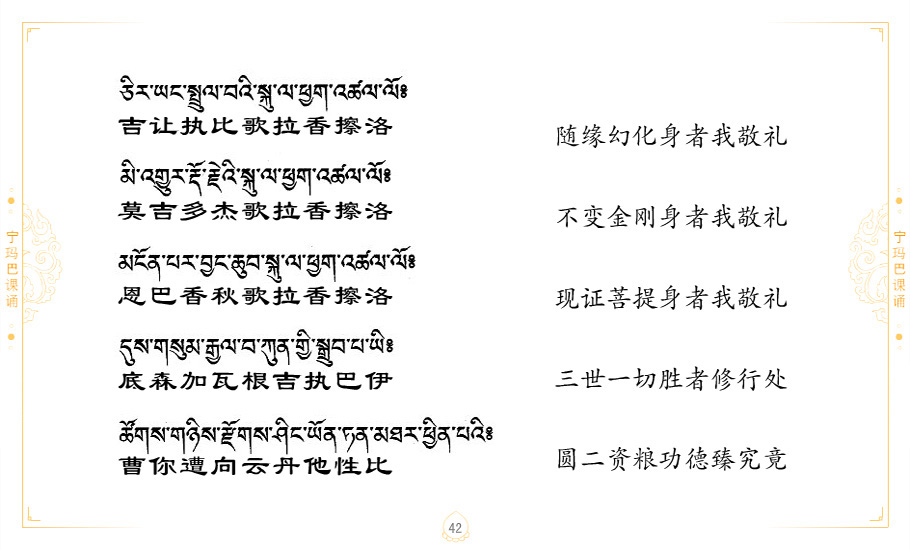 ཅིར་ཡང་སྤྲུལ་བའི་སྐུ་ལ་ཕྱག་འཚལ་ལོ༔
吉让执比歌拉香擦洛
随缘幻化身者我敬礼
མི་འགྱུར་རྡོ་རྗེའི་སྐུ་ལ་ཕྱག་འཚལ་ལོ༔
莫吉多杰歌拉香擦洛
不变金刚身者我敬礼
མངོན་པར་བྱང་ཆུབ་སྐུ་ལ་ཕྱག་འཚལ་ལོ༔
恩巴香秋歌拉香擦洛
现证菩提身者我敬礼
དུས་གསུམ་རྒྱལ་བ་ཀུན་གྱི་སྒྲུབ་པ་ཡི༔
底森加瓦根吉执巴伊
三世一切胜者修行处
ཚོགས་གཉིས་རྫོགས་ཤིང་ཡོན་ཏན་མཐར་ཕྱིན་པའི༔
曹你遭向云丹他性比
圆二资粮功德臻究竟
宁玛巴课诵
宁玛巴课诵
42